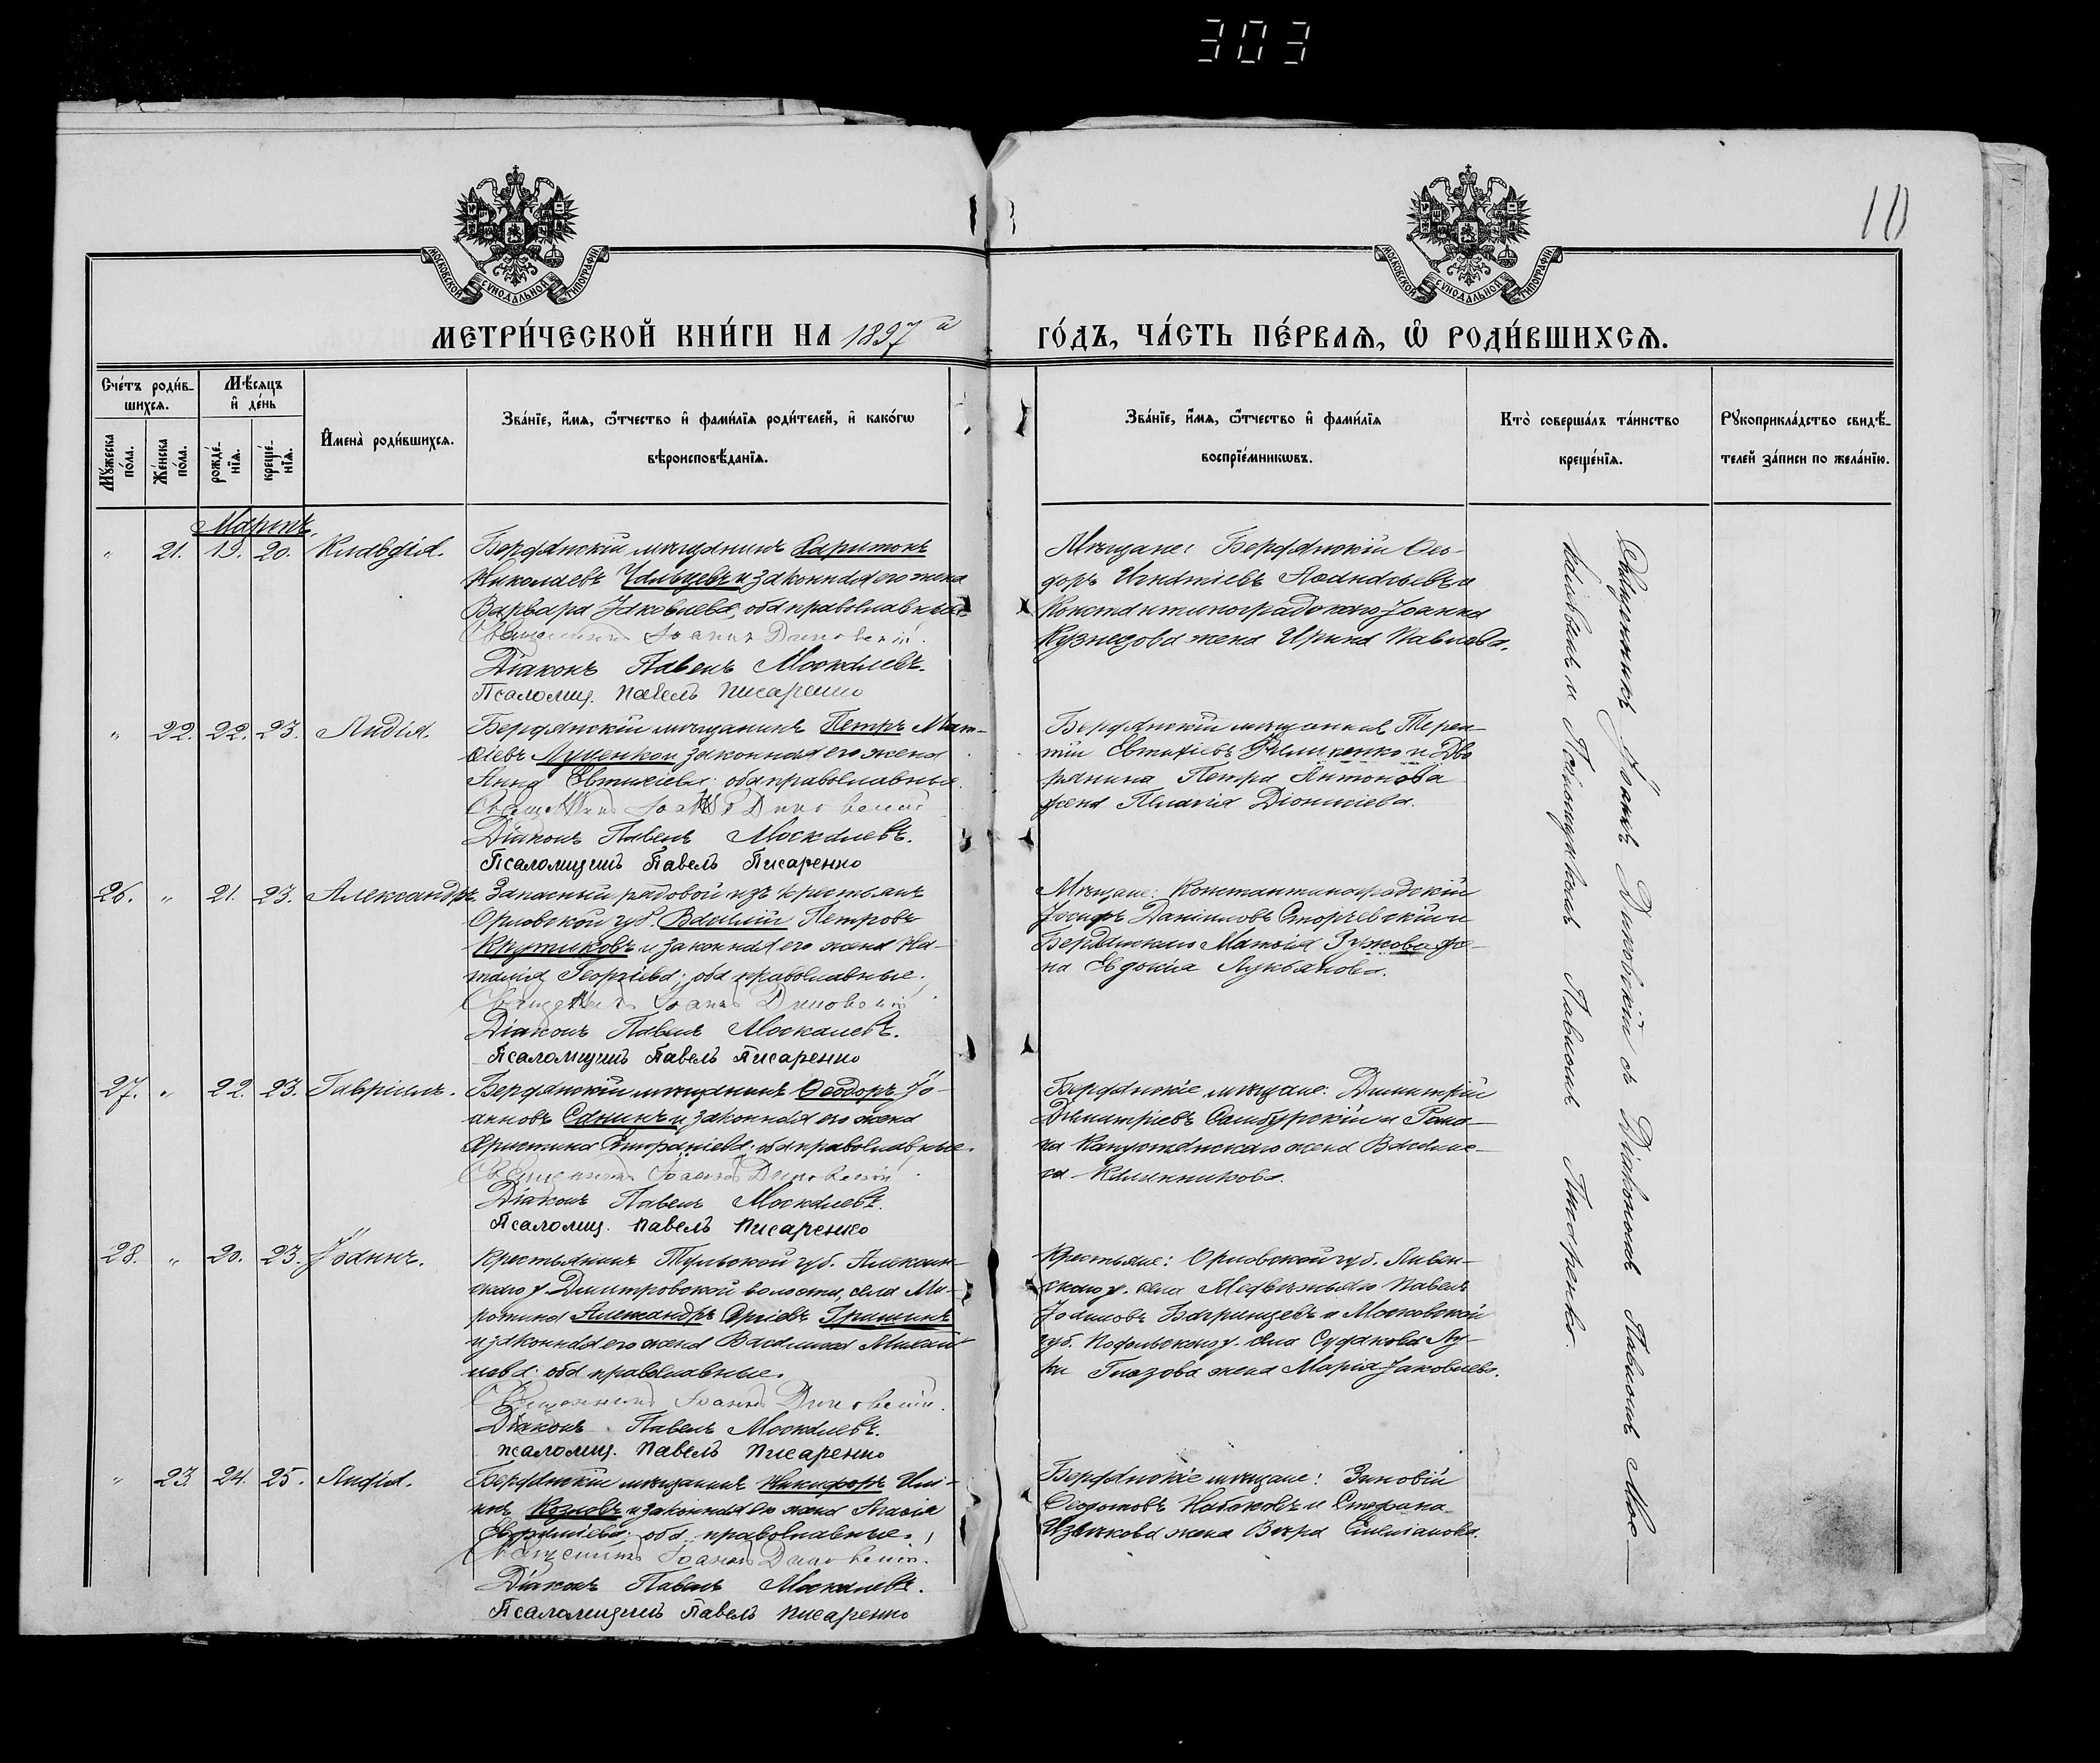 303
10
МОСКОВСКОЙ СѴНОДАЛЬНОЙ ТИПОГРАФІИ
МОСКОВСКОЙ СѴНОДАЛЬНОЙ ТИПОГРАФІИ
МЕТРИ́ЧЕСКОЙ КНИ́ГИ НА 1897 й ГО́ДЪ, ЧА́СТЬ ПЕ́РВАЯ, Ѡ҆ РОДИ́ВШИХСЯ.
Сче́тъ роди́в-
шихся.
Мꙋ́жеска
по́ла.
Же́нска
по́ла.
Мѣ́сяцъ
и҆ де́нь
рожде́-
нїя.
креще́-
нїя.
И҆мена̀ роди́вшихся.
Зва́нїе, и҆́мя, ѻ҆́тчество и҆ фами́лїя роди́телей, и҆ како́гѡ
вѣроисповѣ́данїя.
Зва́нїе, и҆́мя, ѻ҆́тчество и҆ фами́лїя
воспрїе́мникѡвъ.
Кто̀ соверша́лъ та́инство
креще́нїя.
Рꙋкоприкла́дство свидѣ́-
телей за́писи по жела́нїю.
Мартъ.
" 21. 19. 20. Клавдія.
Бердянскій мѣщанинъ Харитонъ
Николаевъ и законная его жена
Варвара Іаковлева, оба православные.
Священникъ Іоаннъ Диковскій.
Діаконъ Павелъ Москалевъ.
Псаломщ. Павелъ Писаренко
Мѣщане: Бердянскій Ѳео-
доръ Игнатіевъ и
Константиноградскаго Іоанна
Кузнецова жена Ирина Павлова.
" 22. 22. 23. Лидія.
Бердянскій мѣщанинъ Петръ Мат-
ѳіевъ Луценко и законная его жена
Анна Евтихіева оба православные.
Священникъ Іоаннъ Диковскій
Діаконъ Павелъ Москалевъ.
Псаломщикъ Павелъ Писаренко
Бердянскій мѣщанинъ Терен-
тій Евтихіевъ и Дво
рянина Петра Антонова
жена Пелагія Діонисіева.
26. " 21. 23. Александръ.
Запасный рядовой изъ крестьянъ
Орловской губ. Василій Петровъ
Крутиковъ и законная его жена На-
талія Георгіева; оба православные.
Священникъ Іоаннъ Диковскій
Діаконъ Павелъ Москалевъ.
Псаломщикъ Павелъ Писаренко
Мѣщане: Константиноградскій
Іосифъ Даніиловъ Сторчевскій и
Бердянскаго Матѳія Зужова же-
на Евдокія Лукьянова.
27. " 22. 23. Гавріилъ.
Бердянскій мѣщанинъ Ѳеодоръ Іо-
анновъ Санинъ и законная его жена
Христина оба православные.
Священникъ Іоаннъ Диковскій
Діаконъ Павелъ Москалевъ.
Псаломщ. Павелъ Писаренко
Бердянскіе мѣщане: Димитрій
Димитріевъ Самбурскій и Рома-
на Капустянскаго жена Василис-
са Калинникова.
28. " 20. 23. Іоаннъ.
Крестьянинъ Тульской губ. Алексин-
скаго у. Димитровской волости, села Ми-
ротина Александръ Сергіевъ Гришинъ
и законная его жена Василиса Михаи-
лова оба православные.
Священникъ Іоаннъ Диковскій.
Діаконъ Павелъ Москалевъ.
Псаломщ. Павелъ Писаренко
Крестьяне: Орловской губ. Ливен-
скаго у. села Медвѣжьяго Павелъ
Іоанновъ Багринцевъ и Московской
губ. Подольскаго у. села Судакова Лу-
ки Глазова жена Марія Іаковлева.
" 23. 24. 25. Лидія.
Бердянскій мѣщанинъ Никифоръ Иль-
инъ Козловъ и законная его жена
оба православные.
Священникъ Іоаннъ Диковскій.
Діаконъ Павелъ Москалевъ.
Псаломщикъ Павелъ Писаренко
Бердянскіе мѣщане: Зиновій
Ѳедотовъ Набоковъ и Стефана
Извѣкова жена Вѣра Емеліанова.
Священникъ Іоаннъ Диковскій съ Діакономъ Павломъ Мос-
калевымъ и Псаломщикомъ Павломъ Писаренко.